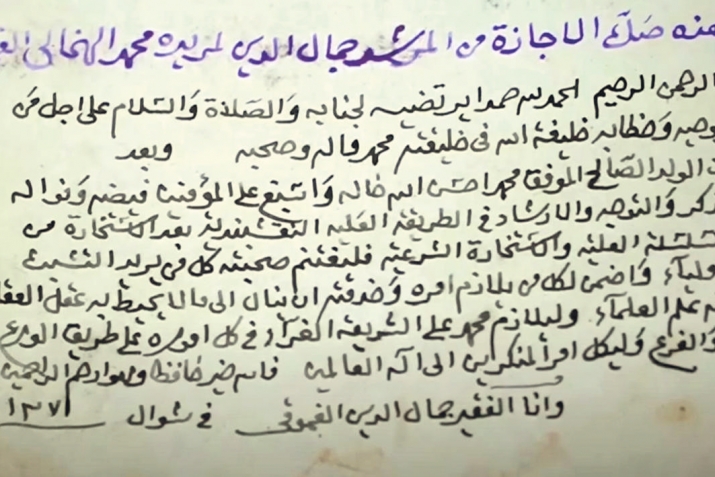 هذه صك الاجازة من المرشد جمال الدين لمريده محمد
الرحمن الرحيم الحمد لله حمدا يرتضيه لجنابه والصلاة والسلام على اجل من
وخطابه خليفة الله في خليقته محمد واله وصحبه وبعد
الولد الصالح الموفق محمد احسن الله حاله واسبغ على المؤمنين فيضه ونواله
والتوجيه والارشاد في الطريقة العلية النقشبندية بعد الاستجازة من
السلسلة العلية والاستخارة الشرعية فليغتنم صحبته كل من يريد التشبث
واضمن لكل من يلازم امره وخدمته ان ينال الى ما لا يحيط به عقل
علم العلماء وليلازم محمد على الشريعة الغراء في كل اموره على طريق الورع
وليكل امر المنكرين الى اله العالمين فالله خير حافظا وهو ارحم الراحمين
وانا الفقير جمال الدين الغموقي في شوال